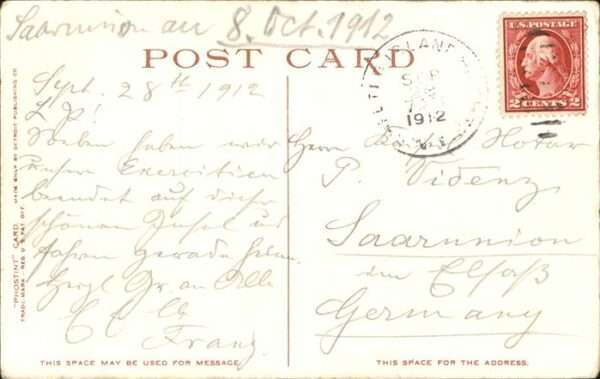 Saarunion an 8. Oct. 1912
POST CARD
U.S. POSTAGE
2 CENTS 2
SEP
1912
Sept. 28th 1912
L. P.!
Soeben haben wir
unsere Exercitien
beendet auf dieser
schönen Insel und
fahren gerade heim.
Herzl. Gr. an Alle
Franz
Herrn Notar
P. Videnz
Saarunion
im Elsaß
Germany
"PHOSTINT" CARD. MADE ONLY BY DETROIT PUBLISHING CO.
TRADE MARK REG. U.S. PAT. OFF.
THIS SPACE MAY BE USED FOR MESSAGE.
THIS SPACE FOR THE ADDRESS.